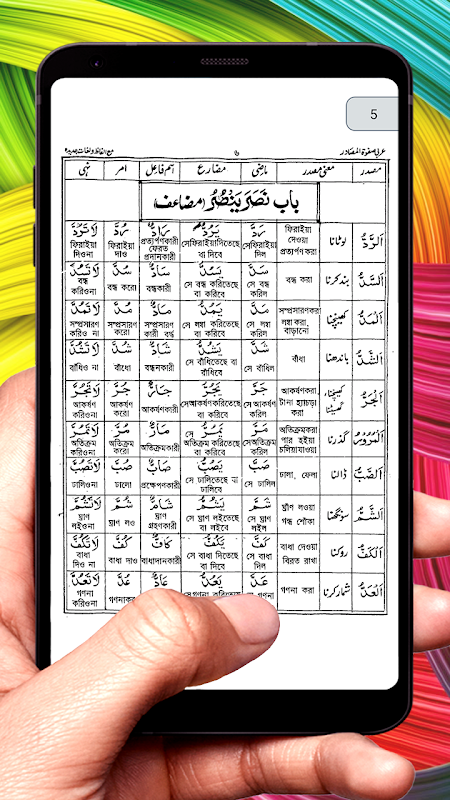 5
عربی صفوۃ المصادر
٦
مع الفاظ ولغات جدیدہ
مصدر معنی مصدر ماضی مضارع اسم فاعل امر نہی
باب نَصَرَ يَنْصُرُ (مضاعف)
اَلرَّدُّ لوٹانا ফিরাইয়া দেওয়া প্রত্যার্পণ করা رَدَّ يَرُدُّ رَادٌّ رُدَّ لَاتَرُدَّ
সেফিরাইয়া দিল সেফিরাইয়াদিতেছে বা দিবে প্রত্যার্পণকারী ফেরত প্রদানকারী ফিরাইয়া দাও ফিরাইয়া দিওনা
اَلسَّدُّ بندکرنا বন্ধ করা سَدَّ يَسُدُّ سَادٌّ سُدَّ لَاتَسُدَّ
সে বন্ধ করিল সে বন্ধ করিতেছে বা করিবে বন্ধকারী বন্ধ করো বন্ধ করিওনা
اَلْمَدُّ کھینچنا সম্প্রসারণকরা লম্বা করা, বাড়ানো مَدَّ يَمُدُّ مَادٌّ مُدَّ لَاتَمُدَّ
সে লম্বা করিল সে লম্বা করিতেছে বা করিবে সম্প্রসারণ কারী সম্প্রসারণ করো সম্প্রসারণ করিও না
اَلشَّدُّ باندھنا বাঁধা شَدَّ يَشُدُّ شَادٌّ شُدَّ لَاتَشُدَّ
সে বাঁধিল সে বাঁধিতেছে বা বাঁধিবে বন্ধনকারী বাঁধো বাঁধিও না
اَلْجَرُّ کھینچنا، گھسیٹنا আকর্ষণকরা, টানা হ্যাচড়া করা جَرَّ يَجُرُّ جَارٌّ جُرَّ لَاتَجُرَّ
সে আকর্ষণ করিল সেআকর্ষণকরিতেছে বা করিবে আকর্ষণকারী আকর্ষণ করো আকর্ষণ করিওনা
اَلْمُرُوْرُ گذرنا অতিক্রমকরা পার হইয়া চলিয়াযাওয়া مَرَّ يَمُرُّ مَارٌّ مُرَّ لَاتَمُرَّ
সেঅতিক্রম করিল সে অতিক্রম করিতেছে বা করিবে অতিক্রমকারী অতিক্রম করো অতিক্রম করিওনা
اَلصَّبُّ ڈالنا ঢালা, ফেলা صَبَّ يَصُبُّ صَابٌّ صُبَّ لَاتَصُبَّ
সে ঢালিল সে ঢালিতেছে বা ঢালিবে প্রক্ষেপণকারী ঢালো ঢালিওনা
اَلشَّمُّ سونگھنا ঘ্রাণ লওয়া গন্ধ শোঁকা شَمَّ يَشُمُّ شَامٌّ شُمَّ لَاتَشُمَّ
সে ঘ্রাণ লইল সে ঘ্রাণ লইতেছে বা লইবে ঘ্রাণ গ্রহণকারী ঘ্রাণ লও ঘ্রাণ লইওনা
اَلْكَفُّ روکنا বাধা দেওয়া বিরত রাখা كَفَّ يَكُفُّ كَافٌّ كُفَّ لَاتَكُفَّ
সে বাধা দিল সে বাধা দিতেছে বা দিবে বাধাদানকারী বাধা দাও বাধা দিও না
اَلْعَدُّ شمارکرنا গণনা করা عَدَّ يَعُدُّ عَادٌّ عُدَّ لَاتَعُدَّ
গণনা সেগণনা গণনাকর গণনা করিওনা